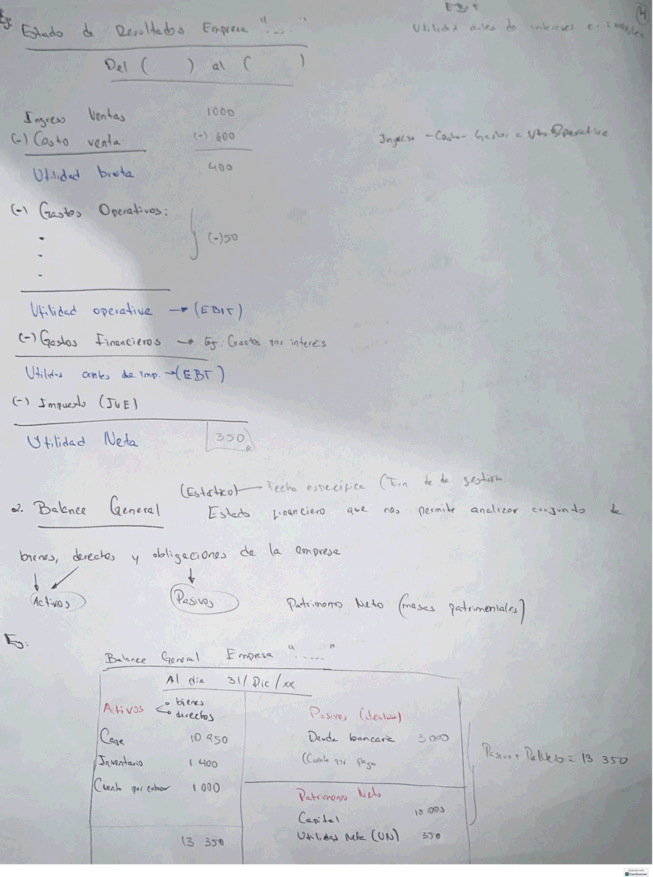 4
EBIT
Utilidad antes de intereses e impuestos
Ej: Estado de Resultados Empresa "....."
Del (      ) al (      )
Ingreso Ventas 1000
(-) Costo venta (-) 600
Utilidad bruta 400
Ingreso - Costo - Gastos = Operativa
(-) Gastos Operativos:
(-)50
Utilidad operativa → (EBIT)
(-) Gastos Financieros → Ej. Gastos por interés
Utilidad antes de imp. → (EBT)
(-) Impuesto (IUE)
Utilidad Neta 350
(Estático) Fecha específica (Fin de gestión
2. Balance General Estado financiero que nos permite analizar conjunto de
bienes, derechos y obligaciones de la empresa
Activos Pasivos Patrimonio Neto (masas patrimoniales)
Ej:
Balance General Empresa "....."
Al día 31/Dic/xx
Activos bienes
derechos
Pasivos (deudas)
Caja 10 950
Deuda bancaria 3.000
Inventario 1 400
(Cuenta por pagar
Pasivo + Pat Neto = 13 350
Cuenta por cobrar 1 000
Patrimonio Neto
Capital 10 000
13 350
Utilidad neta (UN) 350